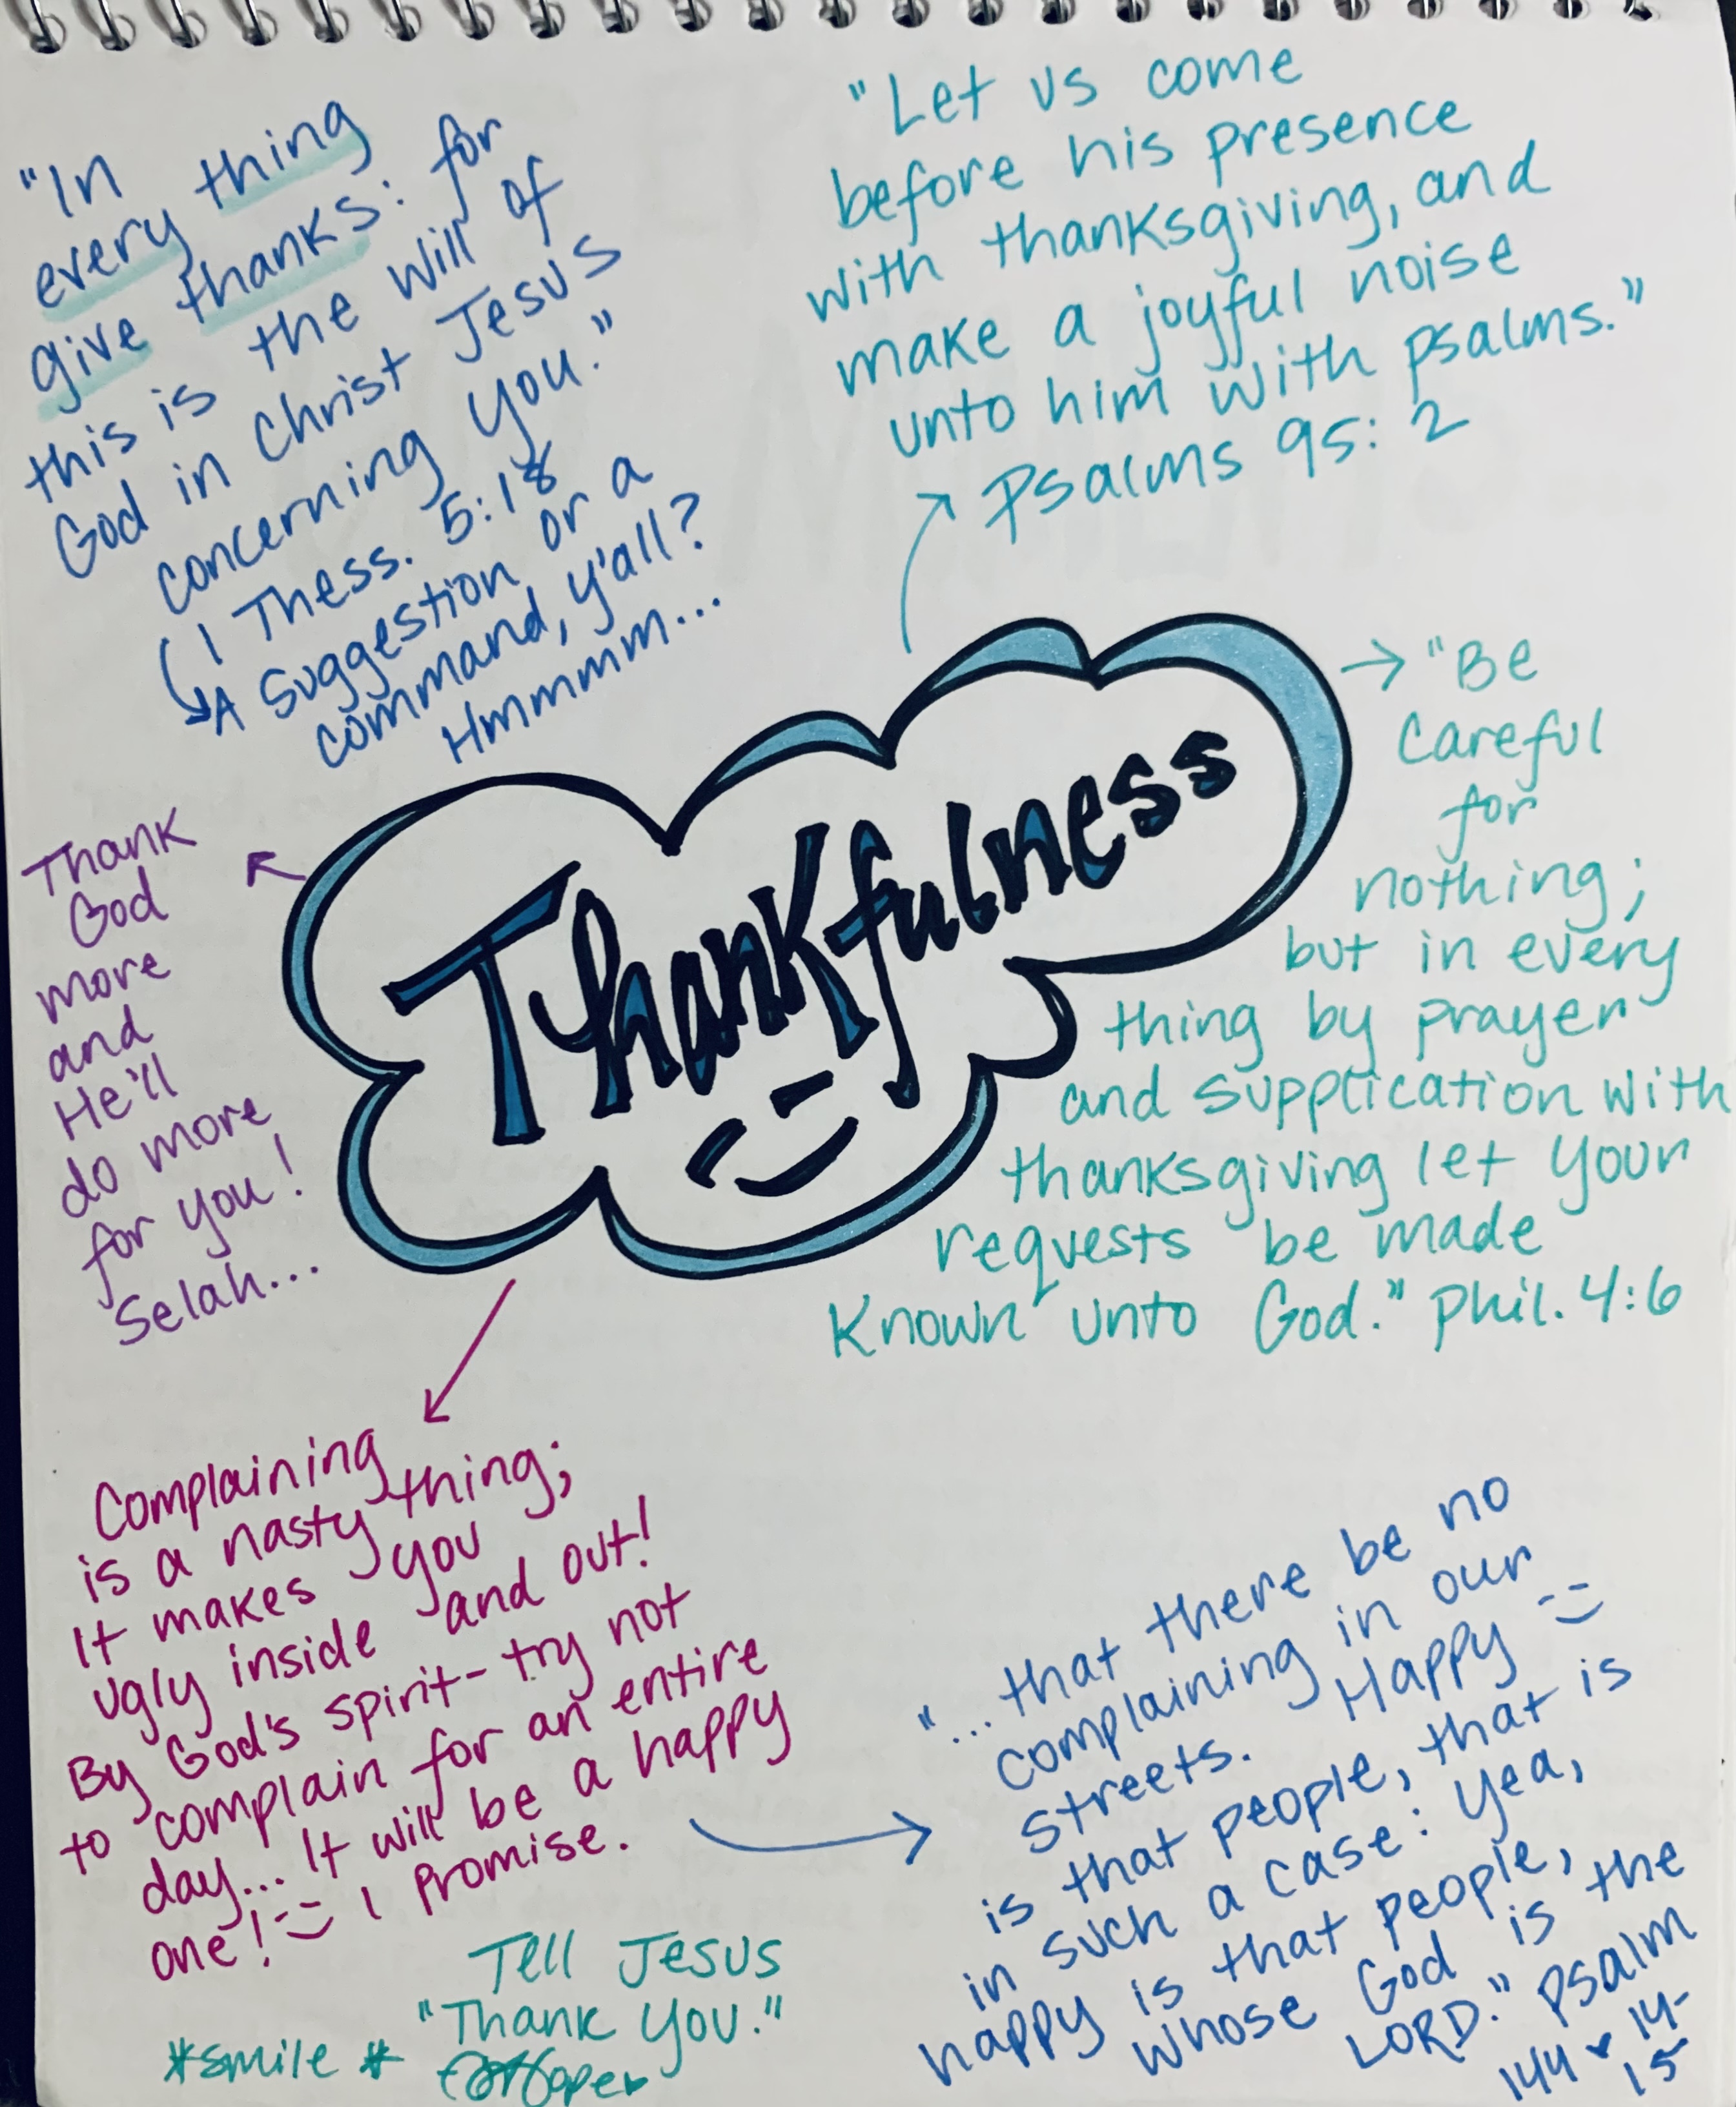 "In
every thing
give thanks: for
this is the will of
God in Christ Jesus
concerning you."
1 Thess. 5:18
A suggestion or a
command, y'all?
Hmmmm...
"Let us come
before his presence
with thanksgiving, and
make a joyful noise
unto him with psalms."
Psalms 95:2
Thankfulness
"Be
careful
for
nothing;
but in every
thing by prayer
and supplication with
thanksgiving let your
requests be made
known unto God." Phil. 4:6
Thank
God
more
and
He'll
do more
for you!
Selah...
Complaining
is a nasty thing;
It makes you
ugly inside and out!
By God's spirit- try not
to complain for an entire
day... It will be a happy
one! I promise.
"...that there be no
complaining in our
streets. Happy
is that people, that is
in such a case: yea,
happy is that people,
whose God is the
LORD." Psalm
144 14-
15
Tell Jesus
"Thank you."
*smile*